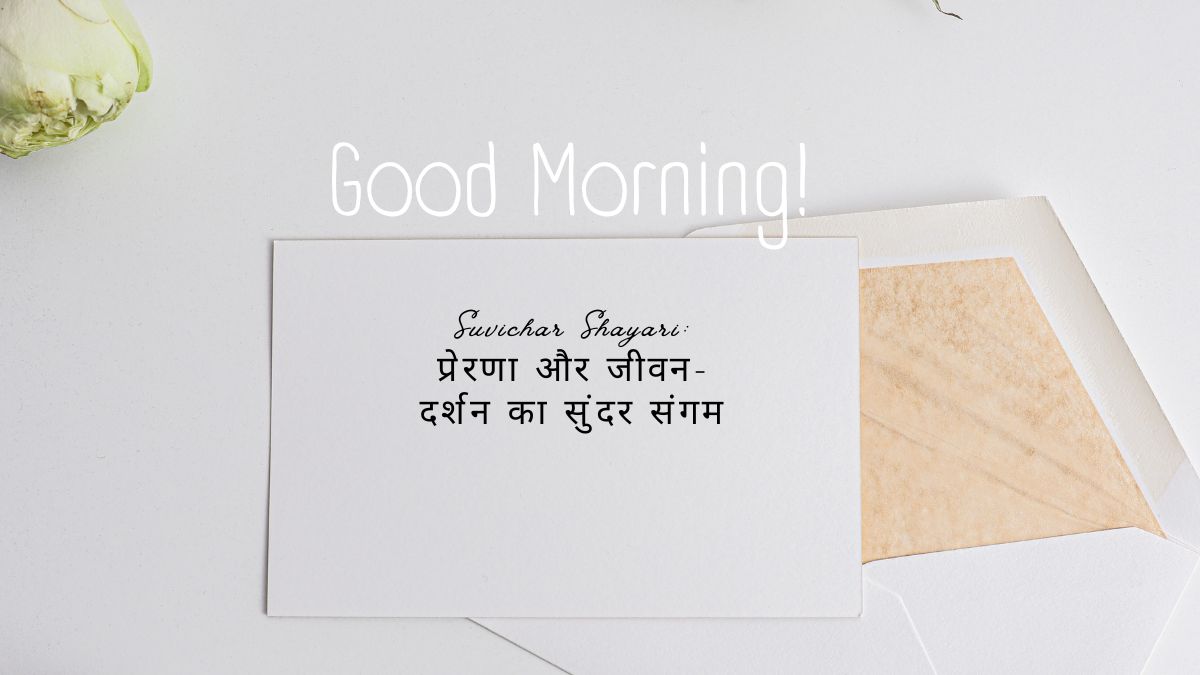 Good Morning!
Suvichar Shayari:
प्रेरणा और जीवन-
दर्शन का सुंदर संगम